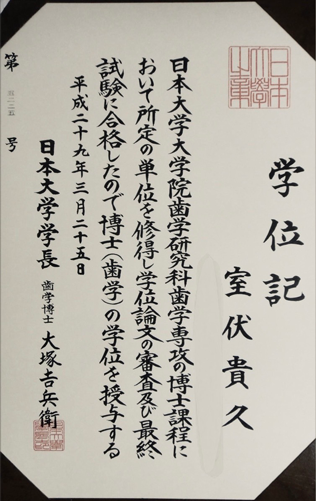 学位記
室伏貴久
日本大学大学院歯学研究科歯学専攻の博士課程に
おいて所定の単位を修得し学位論文の審査及び最終
試験に合格したので博士(歯学)の学位を授与する
平成二十九年三月二十五日
日本大学学長 歯学博士 大塚吉兵衛
第 号
日本大學之章